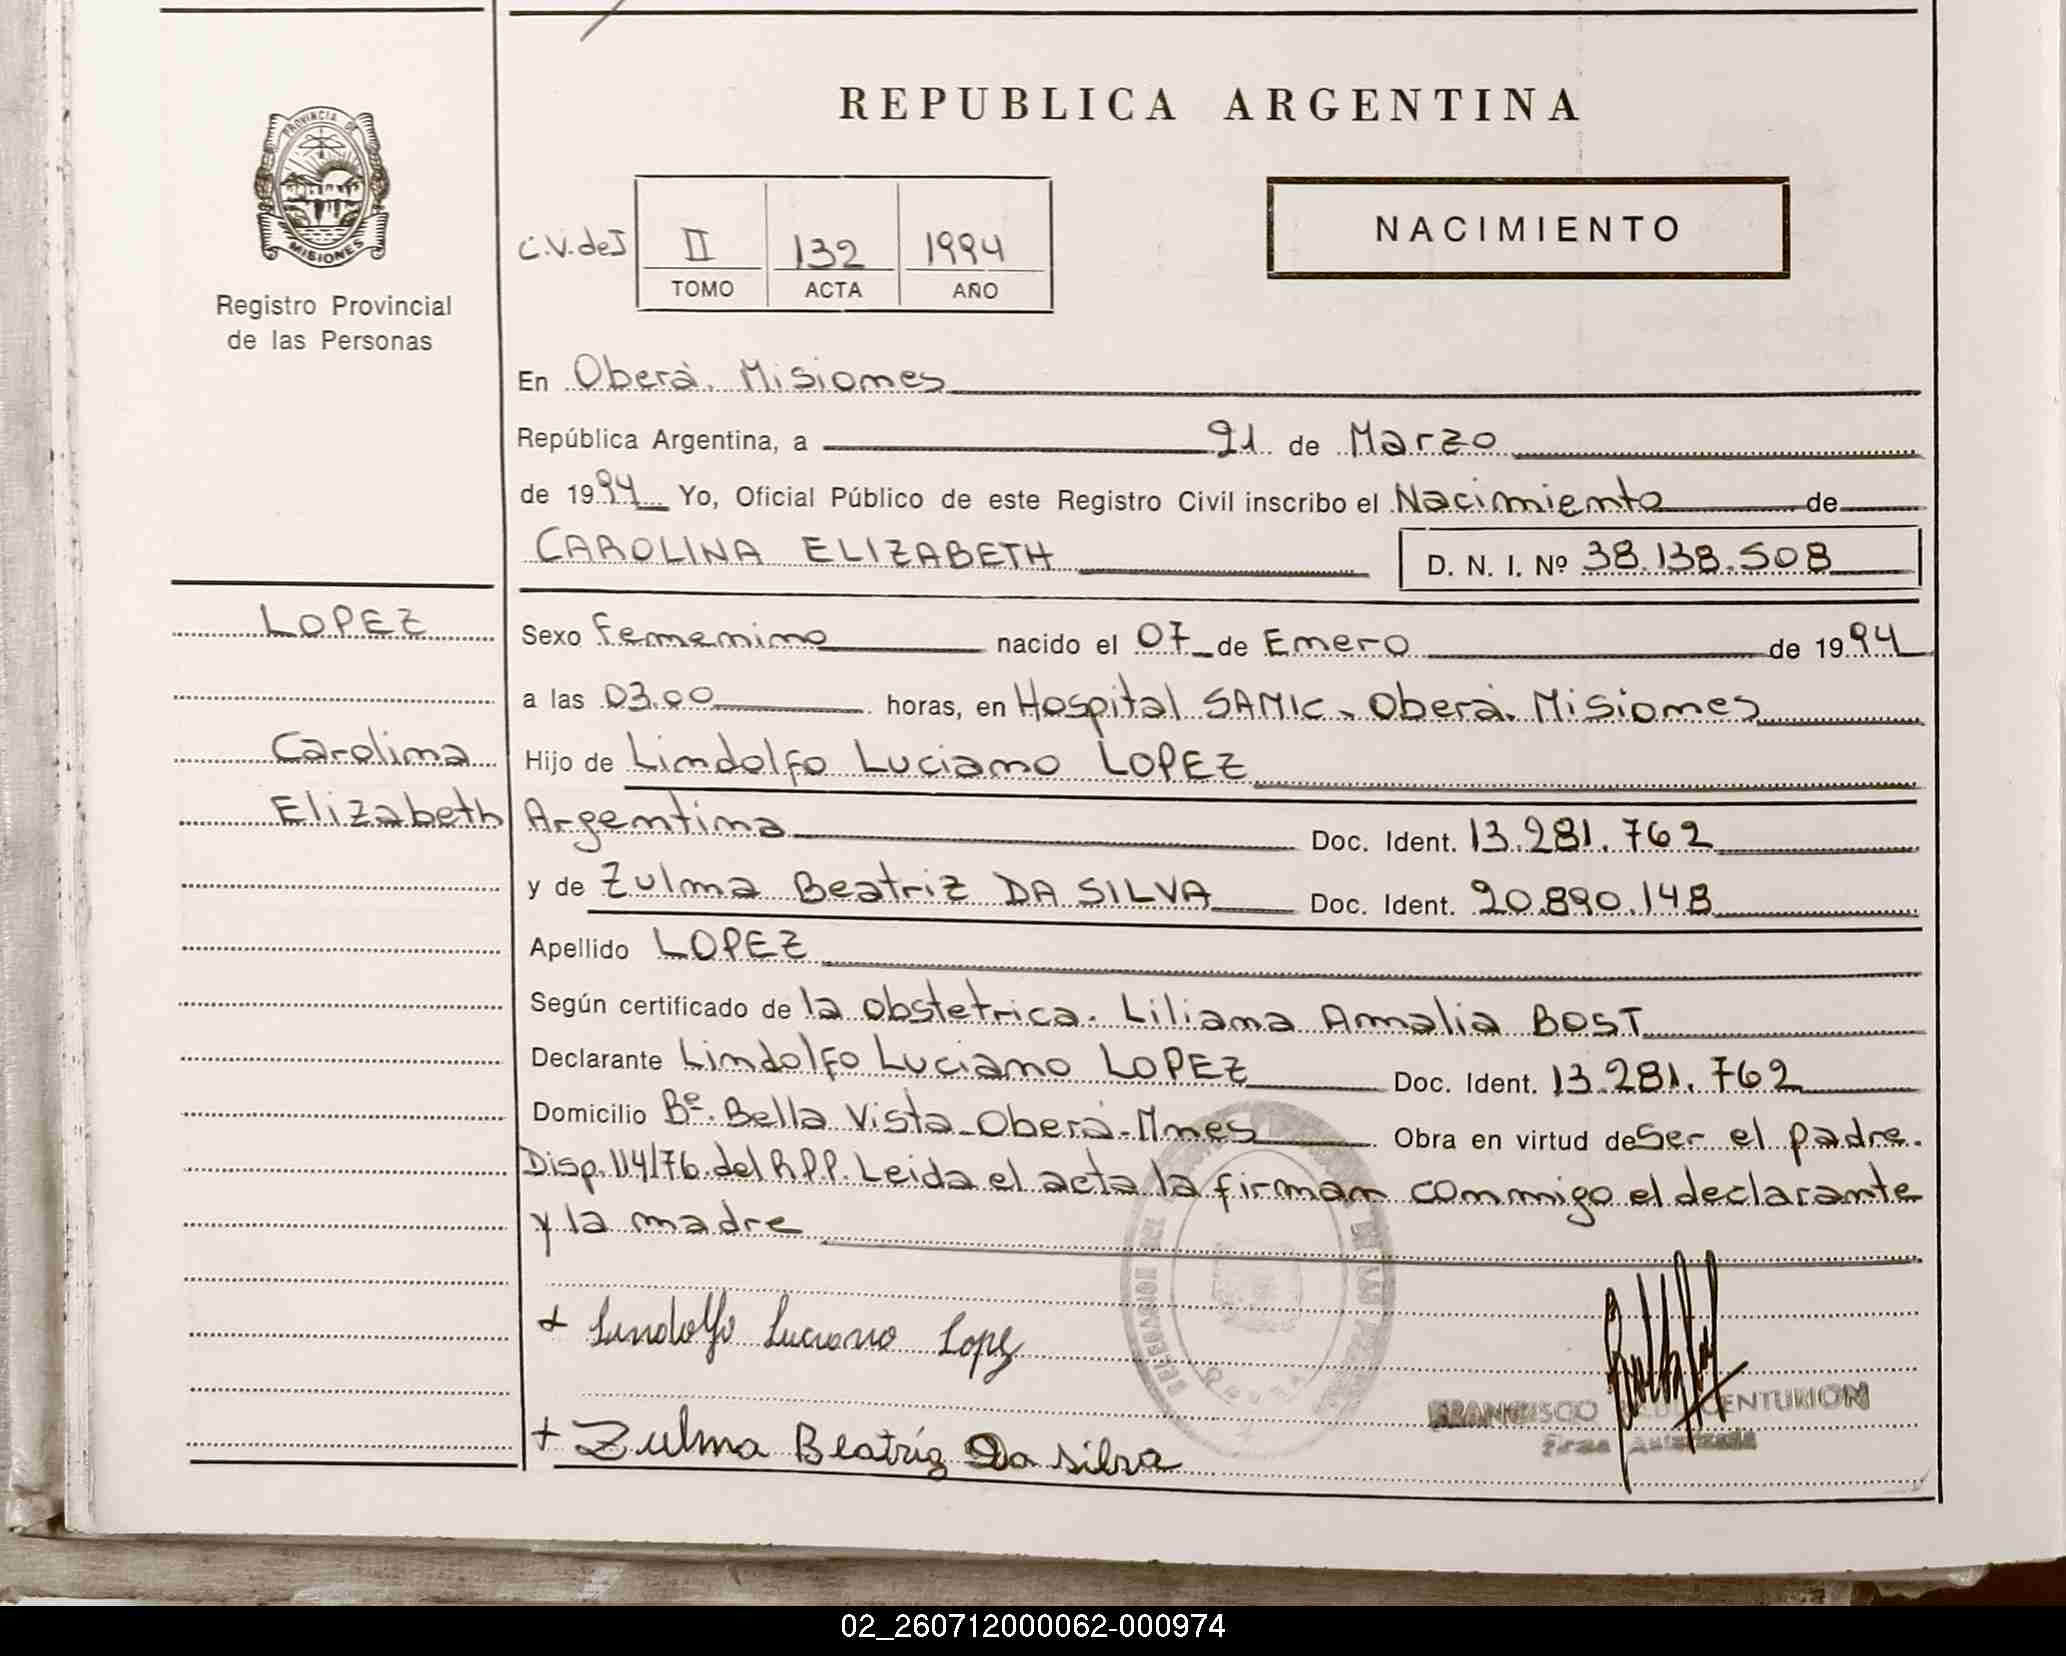 REPUBLICA ARGENTINA
PROVINCIA DE
MISIONES
Registro Provincial
de las Personas
C.V.deJ II 132 1994
TOMO ACTA AÑO
NACIMIENTO
En Oberá. Misiones
República Argentina, a 21 de Marzo
de 1994 Yo, Oficial Público de este Registro Civil inscribo el Nacimiento de
CAROLINA ELIZABETH D. N. I. Nº 38.138.508
LOPEZ
Carolina
Elizabeth
Sexo Femenino nacido el 07 de Enero de 1994
a las 03.00 horas, en Hospital SAMIC. Oberá. Misiones
Hijo de Lindolfo Luciano LOPEZ
Argentina Doc. Ident. 13.281.762
y de Zulma Beatriz DA SILVA Doc. Ident. 20.890.148
Apellido LOPEZ
Según certificado de la obstetrica. Liliana Amalia BOST
Declarante Lindolfo Luciano LOPEZ Doc. Ident. 13.281.762
Domicilio Bº. Bella Vista-Oberá-Mnes Obra en virtud de Ser el padre.
Disp. 114/76. del R.P.P. Leida el acta la firman conmigo el declarante
y la madre
+ Lindolfo Luciano Lopez
DELEGACION DEL DE LAS
FRANCISCO CENTURION
Firma Autorizada
+ Zulma Beatriz Da silva
02_260712000062-000974